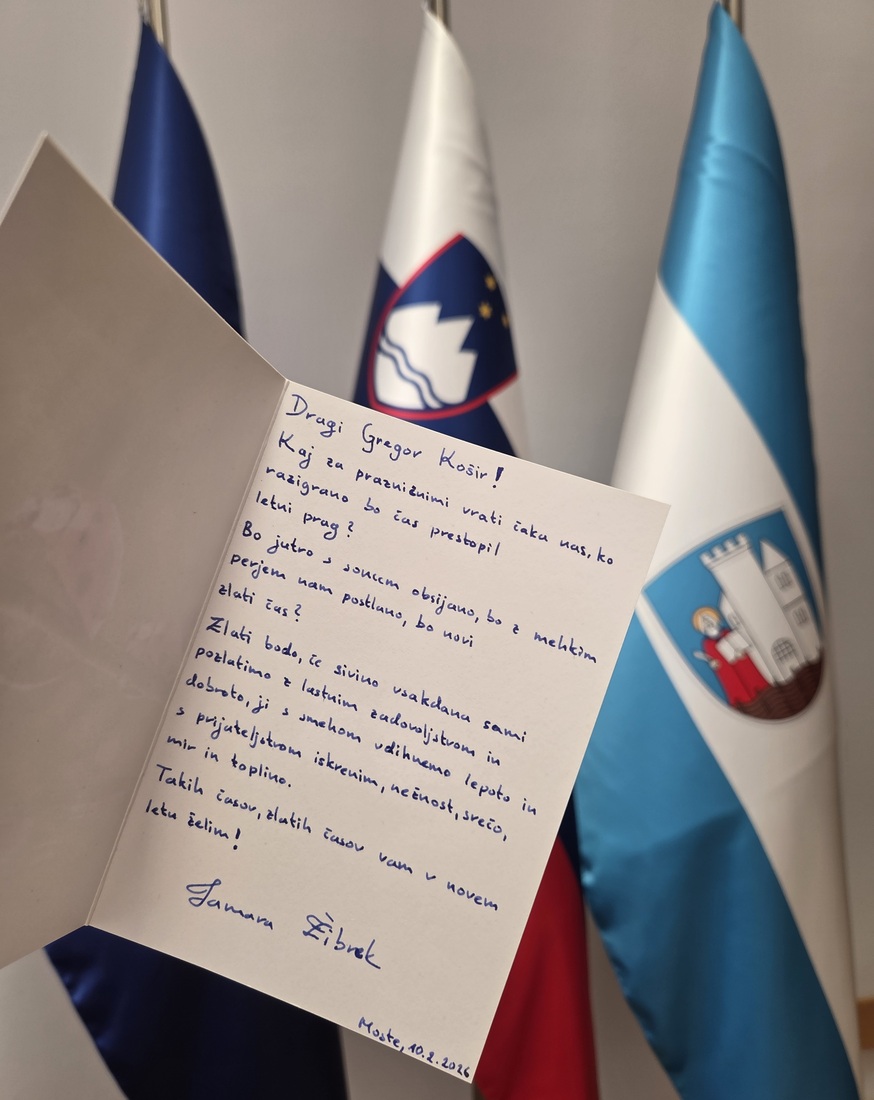 Dragi Gregor Košir!
Kaj za prazničnimi vrati čaka nas, ko
razigrano bo čas prestopil
letni prag?
Bo jutro s soncem obsijano, bo z mehkim
perjem nam postlano, bo novi
zlati čas?
Zlati bodo, če sivino vsakdana sami
pozlatimo z lastnim zadovoljstvom in
dobroto, ji s smehom vdihnemo lepoto in
s prijateljstvom iskrenim, nežnost, srečo,
mir in toplino.
Takih časov, zlatih časov vam v novem
letu želim!
Tamara Žibrek
Moste, 10.2.2026